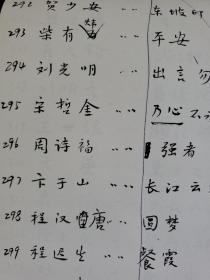 292 贺少安 ‥ ‥ 东坡
293 柴有 ‥ ‥ 平安
294 刘光明 ‥ 出言勿
295 宋哲金 ‥ ‥ 万心不
296 周诗福 ‥ ‥ 强者
297 卞于山 ‥ ‥ 长江云
298 程汉唐 ‥ ‥ 圆梦
299 程迟生 ‥ ‥ 餐霞